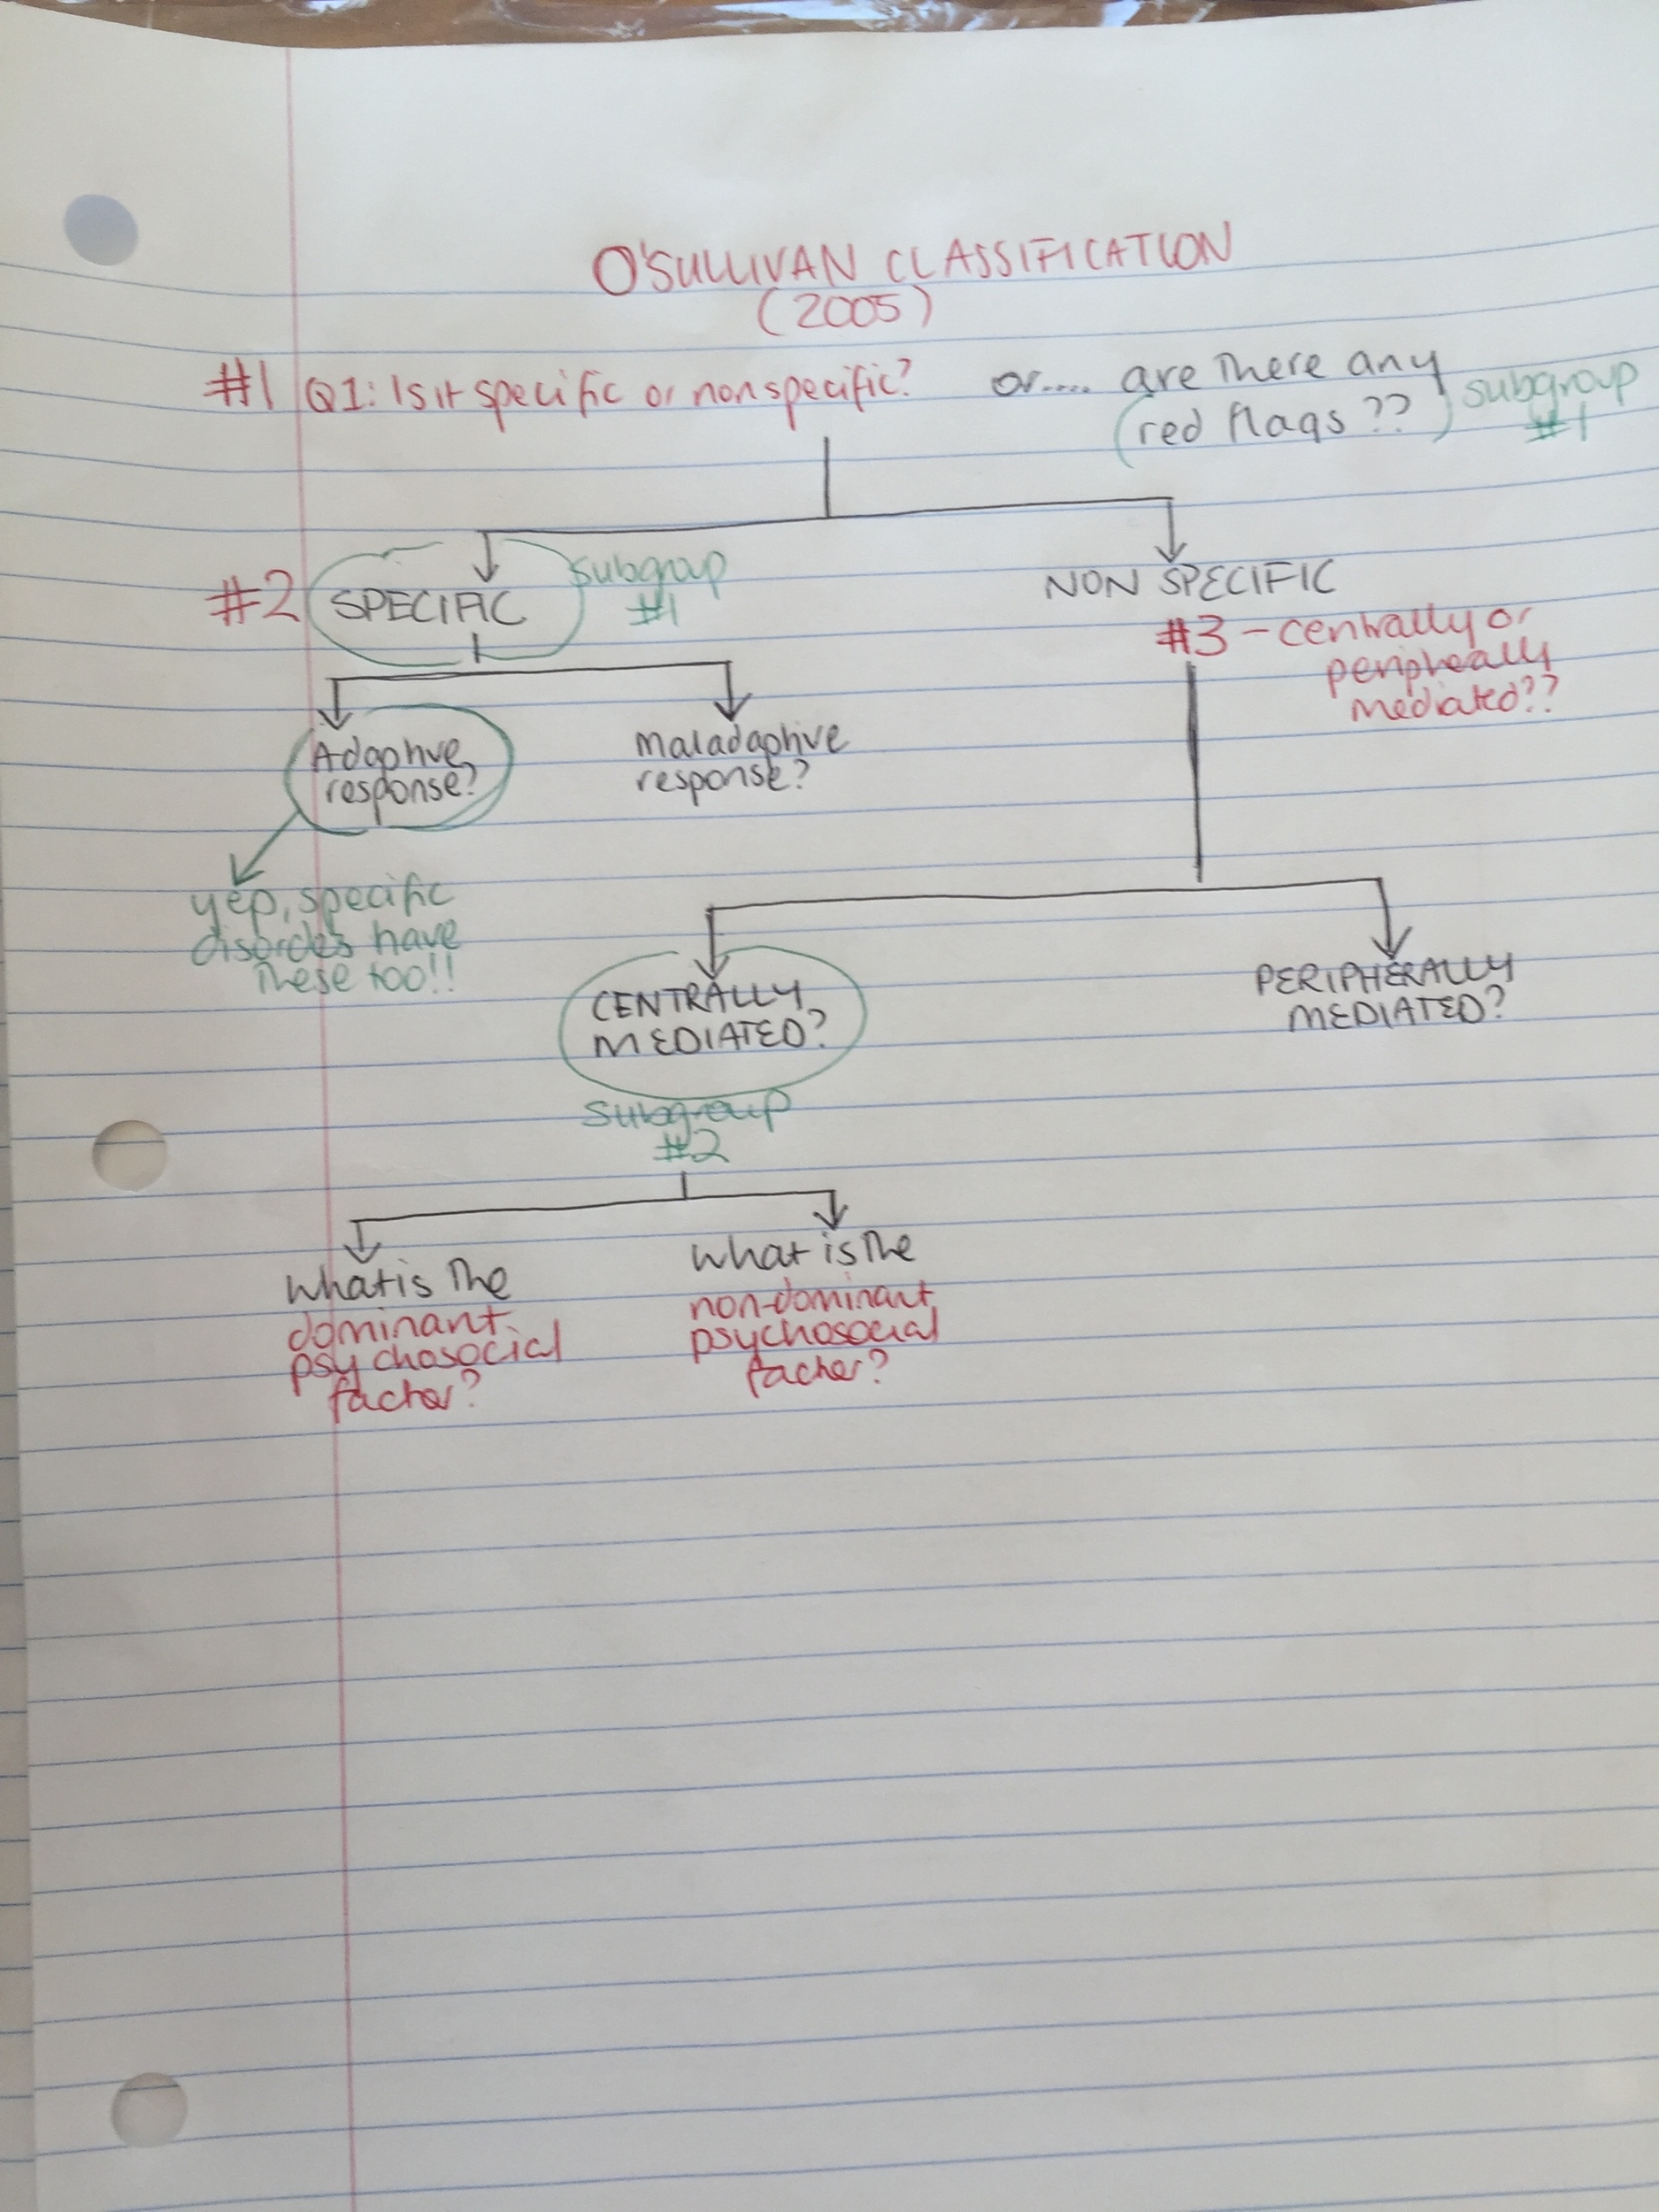 O'SULLIVAN CLASSIFICATION
(2005)
#1 Q1: Is it specific or nonspecific? or.... are there any
(red flags ??) subgroup
#1
#2 SPECIFIC subgroup
#1
NON SPECIFIC
#3 - centrally or
peripherally
mediated??
Adaptive
response?
Maladaptive
response?
yep, specific
disorders have
these too!!
CENTRALLY
MEDIATED?
PERIPHERALLY
MEDIATED?
Subgroup
#2
What is the
dominant
psychosocial
factor?
What is the
non-dominant
psychosocial
factor?